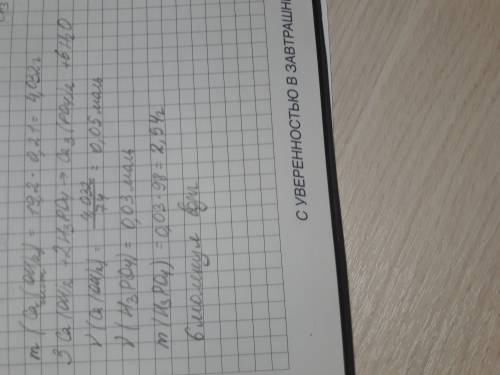 m (Ca(OH)₂) = 19,2 · 0,21 = 4,032 г
3 Ca(OH)₂ + 2H₃PO₄ → Ca₃(PO₄)₂ + 6H₂O
ν(Ca(OH)₂) = 4,032/74 = 0,05 моль
ν(H₃PO₄) = 0,03 моль
m(H₃PO₄) = 0,03·98 = 2,94 г
6 молекул воды
С УВЕРЕННОСТЬЮ В ЗАВТРАШН